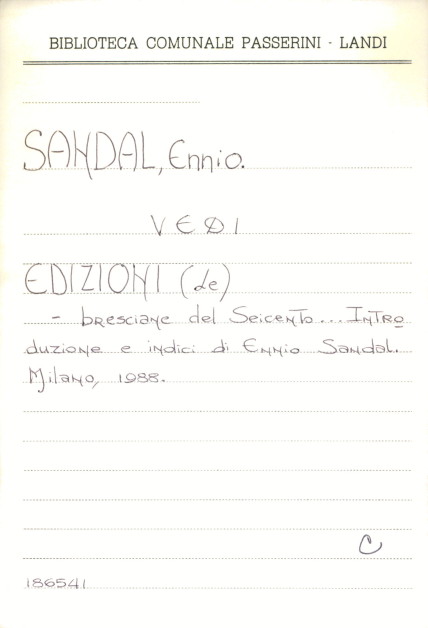 BIBLIOTECA COMUNALE PASSERINI - LANDI
SANDAL, Ennio.
VEDI
EDIZIONI (le)
- bresciane del Seicento... Intro
duzione e indici di Ennio Sandal.
Milano, 1988.
C
186541